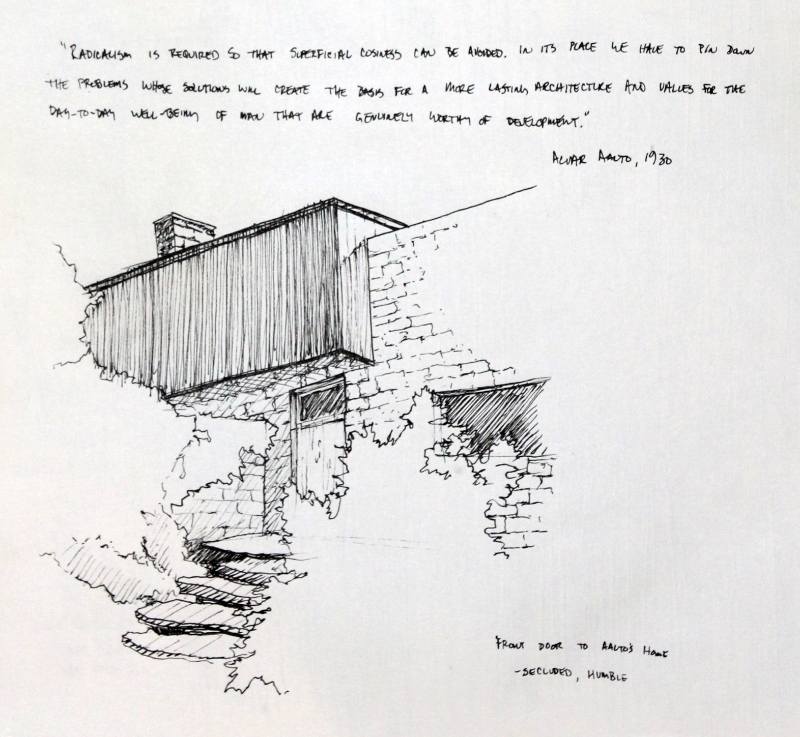 "RADICALISM IS REQUIRED SO THAT SUPERFICIAL COSINESS CAN BE AVOIDED. IN ITS PLACE WE HAVE TO PIN DOWN
THE PROBLEMS WHOSE SOLUTIONS WILL CREATE THE BASIS FOR A MORE LASTING ARCHITECTURE AND VALUES FOR THE
DAY-TO-DAY WELL-BEING OF MAN THAT ARE GENUINELY WORTHY OF DEVELOPMENT."
ALVAR AALTO, 1930
FRONT DOOR TO AALTO'S HOME
-SECLUDED, HUMBLE